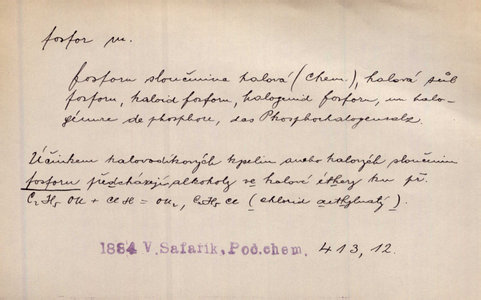 fosfor m.
fosforu sloučenina halová (chem.), halová sůl
fosforu, haloid fosforu, halogenid fosforu, un halo-
génure de phosphore, das Phosphorhalogensalz.
Účinkem halovodíkových kyselin anebo halových sloučenin
fosforu předcházejí alkoholy ve halové éthery ku př.
C₂H₅ OH + ClH = OH₂, C₂H₅ Cl (chlorid aethylnatý).
1884 V. Šafařík, Poč. chem. 413, 12.